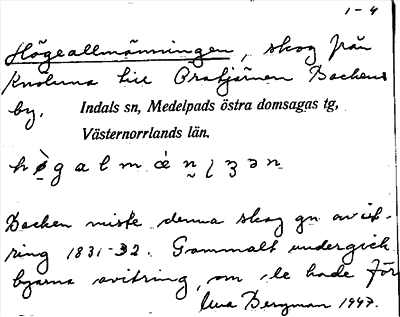 1-4
Högeallmänningen, skog från
Knölarna till Öratjärnen Backens
by. Indals sn, Medelpads östra domsagas tg,
Västernorrlands län.
Backen miste denna skog gn avvit-
ring 1831-32. Gammalt undergick
byarna avvitring, om de hade för
Bergman 1947.